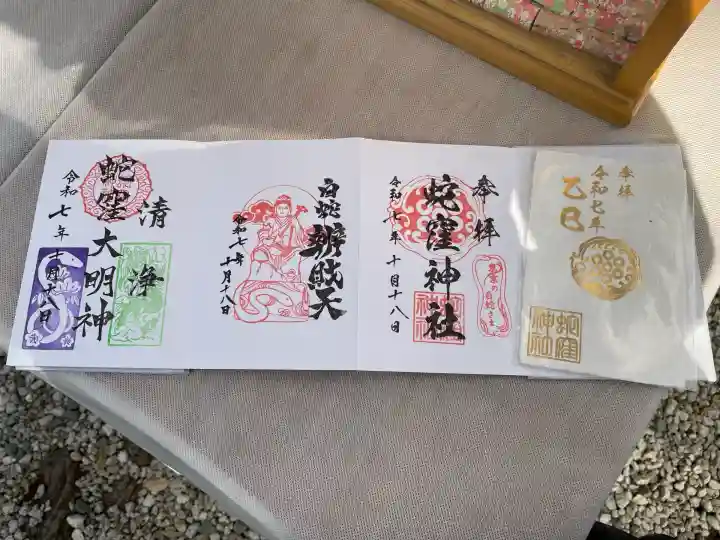 奉拝
令和七年
乙巳
蛇窪
神社
奉拝
蛇窪神社
令和七年 十月十八日
東京の白蛇さま
白蛇辨財天
令和七年
十月十八日
清
浄
蛇窪大明神
令和七年 十月十八日